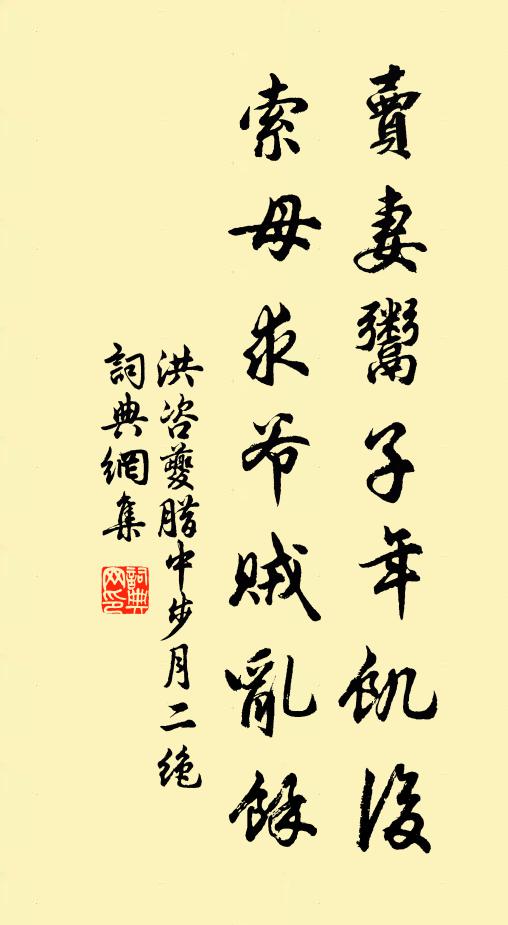 賣妻鬻子年飢後
索母求爷賊亂餘
洪咨夔腊中步月二绝
詞典網集
詞典网印